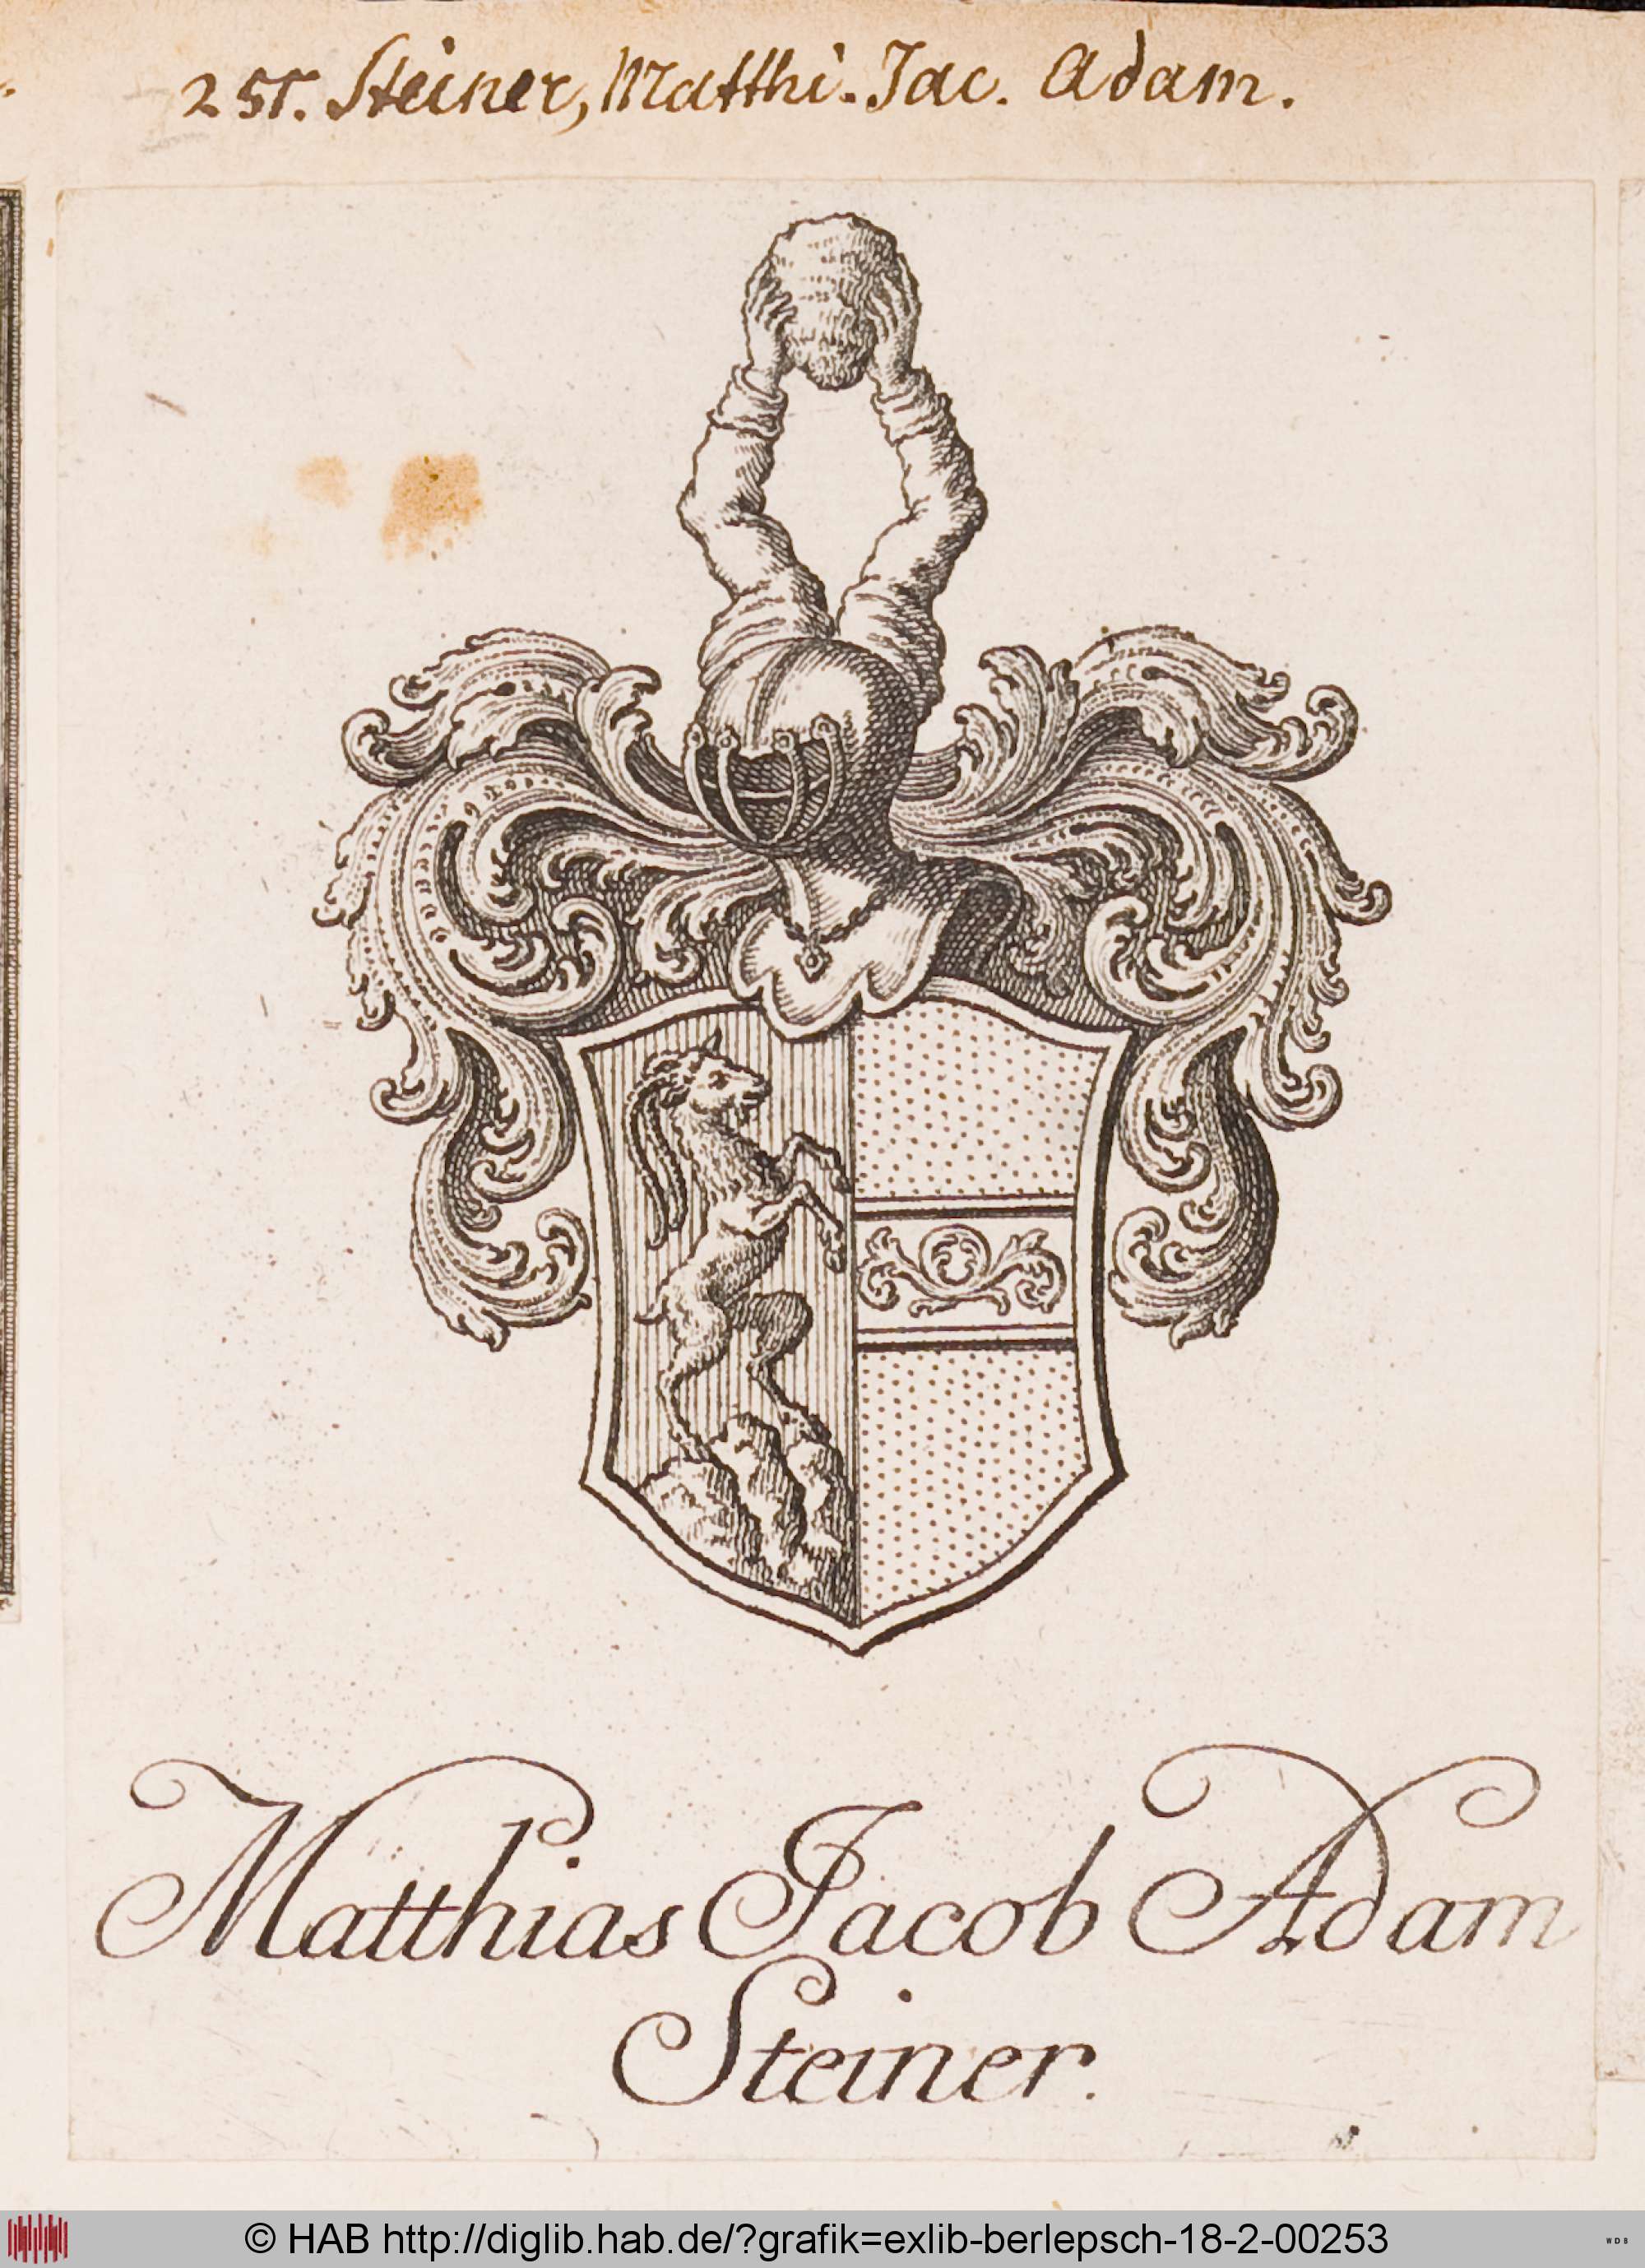 251. Steiner, Matthi. Jac. Adam.
Matthias Jacob Adam
Steiner.
© HAB http://diglib.hab.de/?grafik=exlib-berlepsch-18-2-00253
WDB